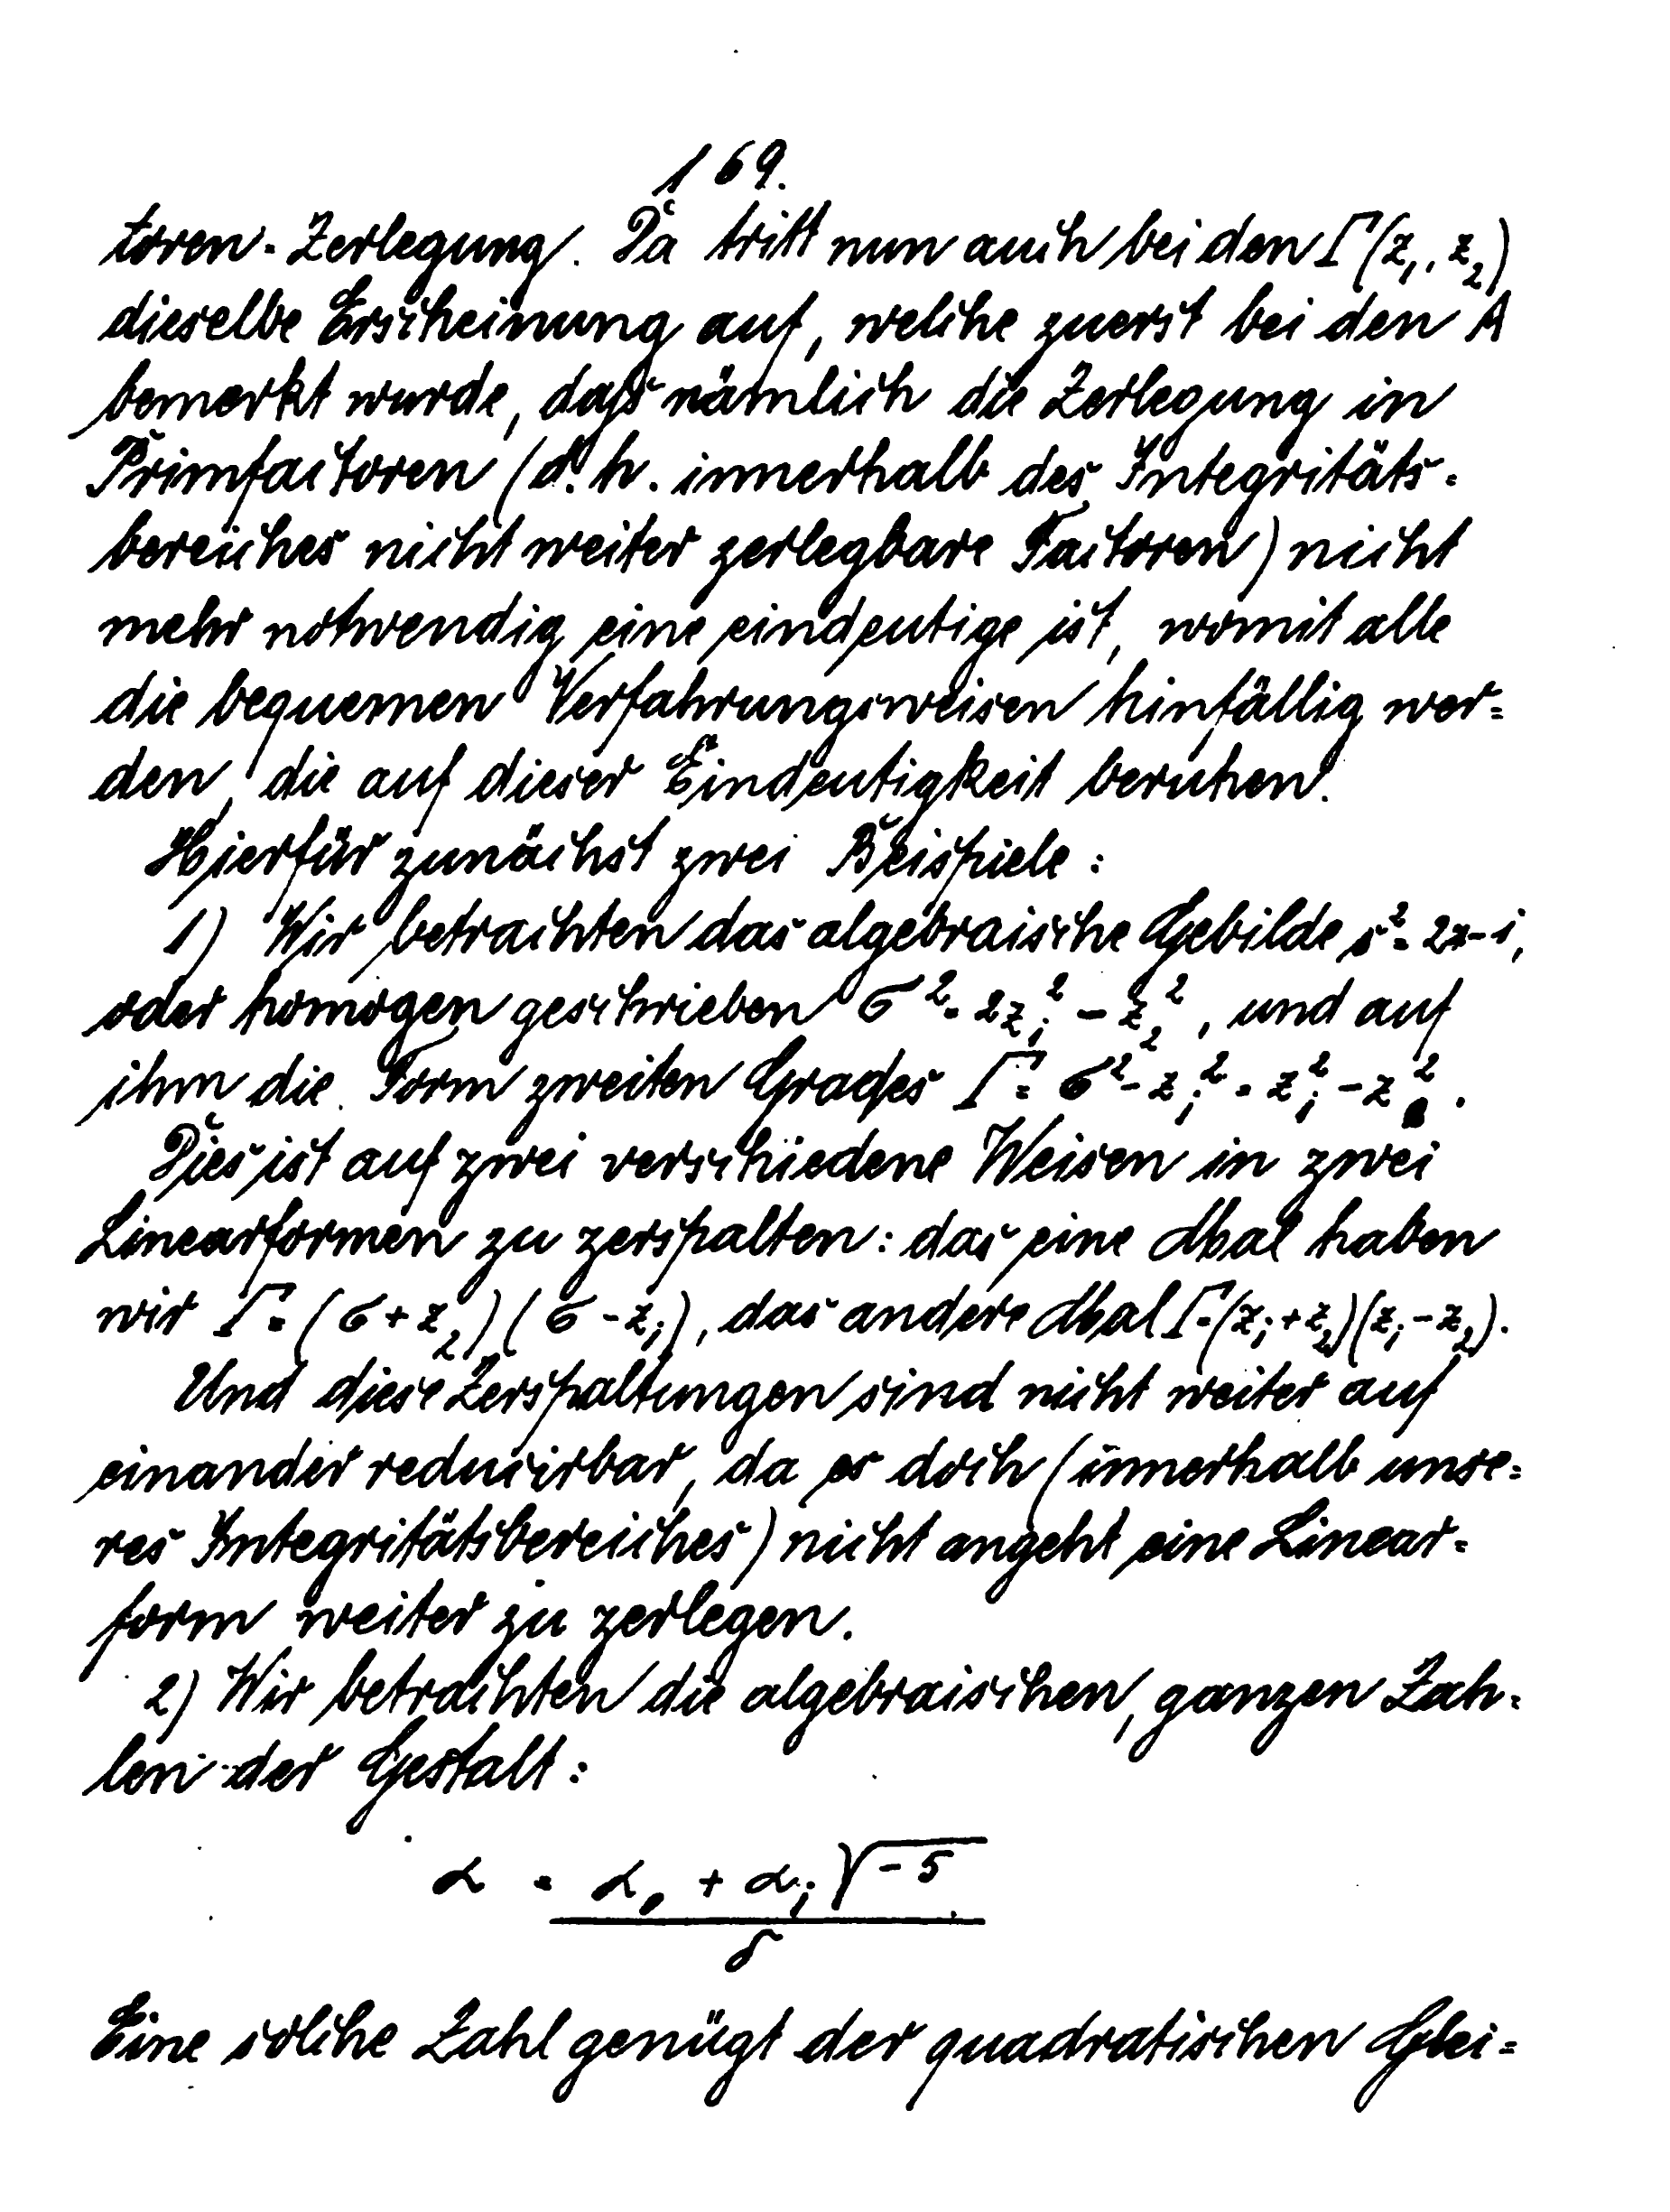 169.
toren-Zerlegung. Da tritt nun auch bei den Γ(z₁, z₂)
dieselbe Erscheinung auf, welche zuerst bei den A
bemerkt wurde, daß nämlich die Zerlegung in
Primfactoren (d. h. innerhalb des Integritäts-
bereiches nicht weiter zerlegbare Factoren) nicht
mehr notwendig eine eindeutige ist, womit alle
die bequemen Verfahrungsweisen hinfällig wer=
den, die auf dieser Eindeutigkeit beruhen.
Hierfür zunächst zwei Beispiele:
1) Wir betrachten das algebraische Gebilde s² = 2z-1,
oder homogen geschrieben σ² = 2z₁² - z₂², und auf
ihm die Form zweiten Grades Γ = σ² - z₁² = z₁² - z₂².
Dies ist auf zwei verschiedene Weisen in zwei
Linearformen zu zerspalten: das eine Mal haben
wir Γ = (σ + z₂)(σ - z₁), das andere Mal Γ = (z₁ + z₂)(z₁ - z₂).
Und diese Zerspaltungen sind nicht weiter auf
einander reducirbar, da es doch (innerhalb unse=
res Integritätsbereiches) nicht angeht eine Linear=
form weiter zu zerlegen.
2) Wir betrachten die algebraischen, ganzen Zah=
len der Gestalt:
α = α₀ + α₁ √-5
δ
Eine solche Zahl genügt der quadratischen Glei=